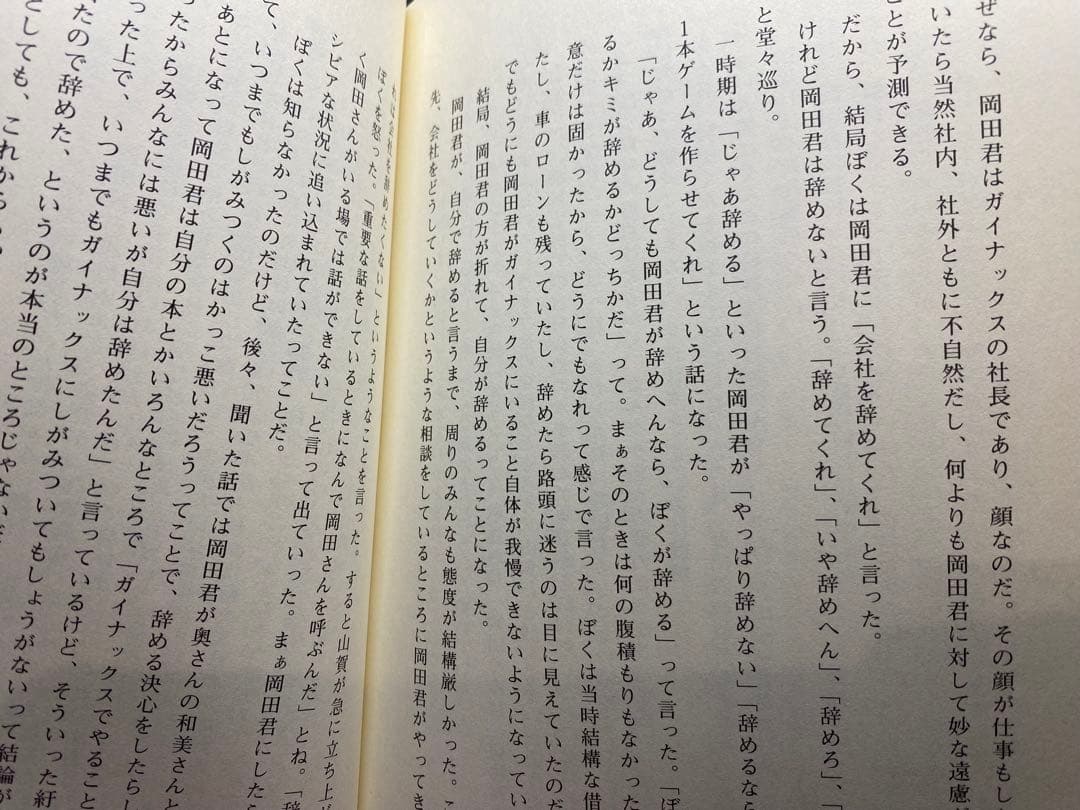 ぜなら、岡田君はガイナックスの社長であり、顔なのだ。その顔が仕事もし
いたら当然社内、社外ともに不自然だし、何よりも岡田君に対して妙な遠慮が
ことが予測できる。
だから、結局ぼくは岡田君に「会社を辞めてくれ」と言った。
けれど岡田君は辞めないと言う。「辞めてくれ」、「いや辞めへん」、「辞めろ」、「
と堂々巡り。
一時期は「じゃあ辞める」といった岡田君が「やっぱり辞めない」「辞めるなら
1本ゲームを作らせてくれ」という話になった。
「じゃあ、どうしても岡田君が辞めへんなら、ぼくが辞める」って言った。「ぼ
るかキミが辞めるかどっちかだ」って。まぁそのときは何の腹積もりもなかった
意だけは固かったから、どうにでもなれって感じで言った。ぼくは当時結構な借
たし、車のローンも残っていたし、辞めたら路頭に迷うのは目に見えていたのだ
でもどうにも岡田君がガイナックスにいること自体が我慢できないようになってい
結局、岡田君の方が折れて、自分が辞めるってことになった。
岡田君が、自分で辞めると言うまで、周りのみんなも態度が結構厳しかった。こ
先、会社をどうしていくかというような相談をしているところに岡田君がやってき
れは会社を辞めたくない」というようなことを言った。すると山賀が急に立ち上が
ぼくを怒った。「重要な話をしているときになんで岡田さんを呼ぶんだ」とね。「辞
く岡田さんがいる場では話ができない」と言って出ていった。まぁ岡田君にした
シビアな状況に追い込まれていたってことだ。
ぼくは知らなかったのだけど、後々、聞いた話では岡田君が奥さんの和美さんと
て、いつまでもしがみつくのはかっこ悪いだろうってことで、辞める決心をしたらし
あとになって岡田君は自分の本とかいろんなところで「ガイナックスでやること
ったからみんなには悪いが自分は辞めたんだ」と言っているけど、そういった紆
った上で、いつまでもガイナックスにしがみついてもしょうがないって結論が
たので辞めた、というのが本当のところじゃない
としても、これから